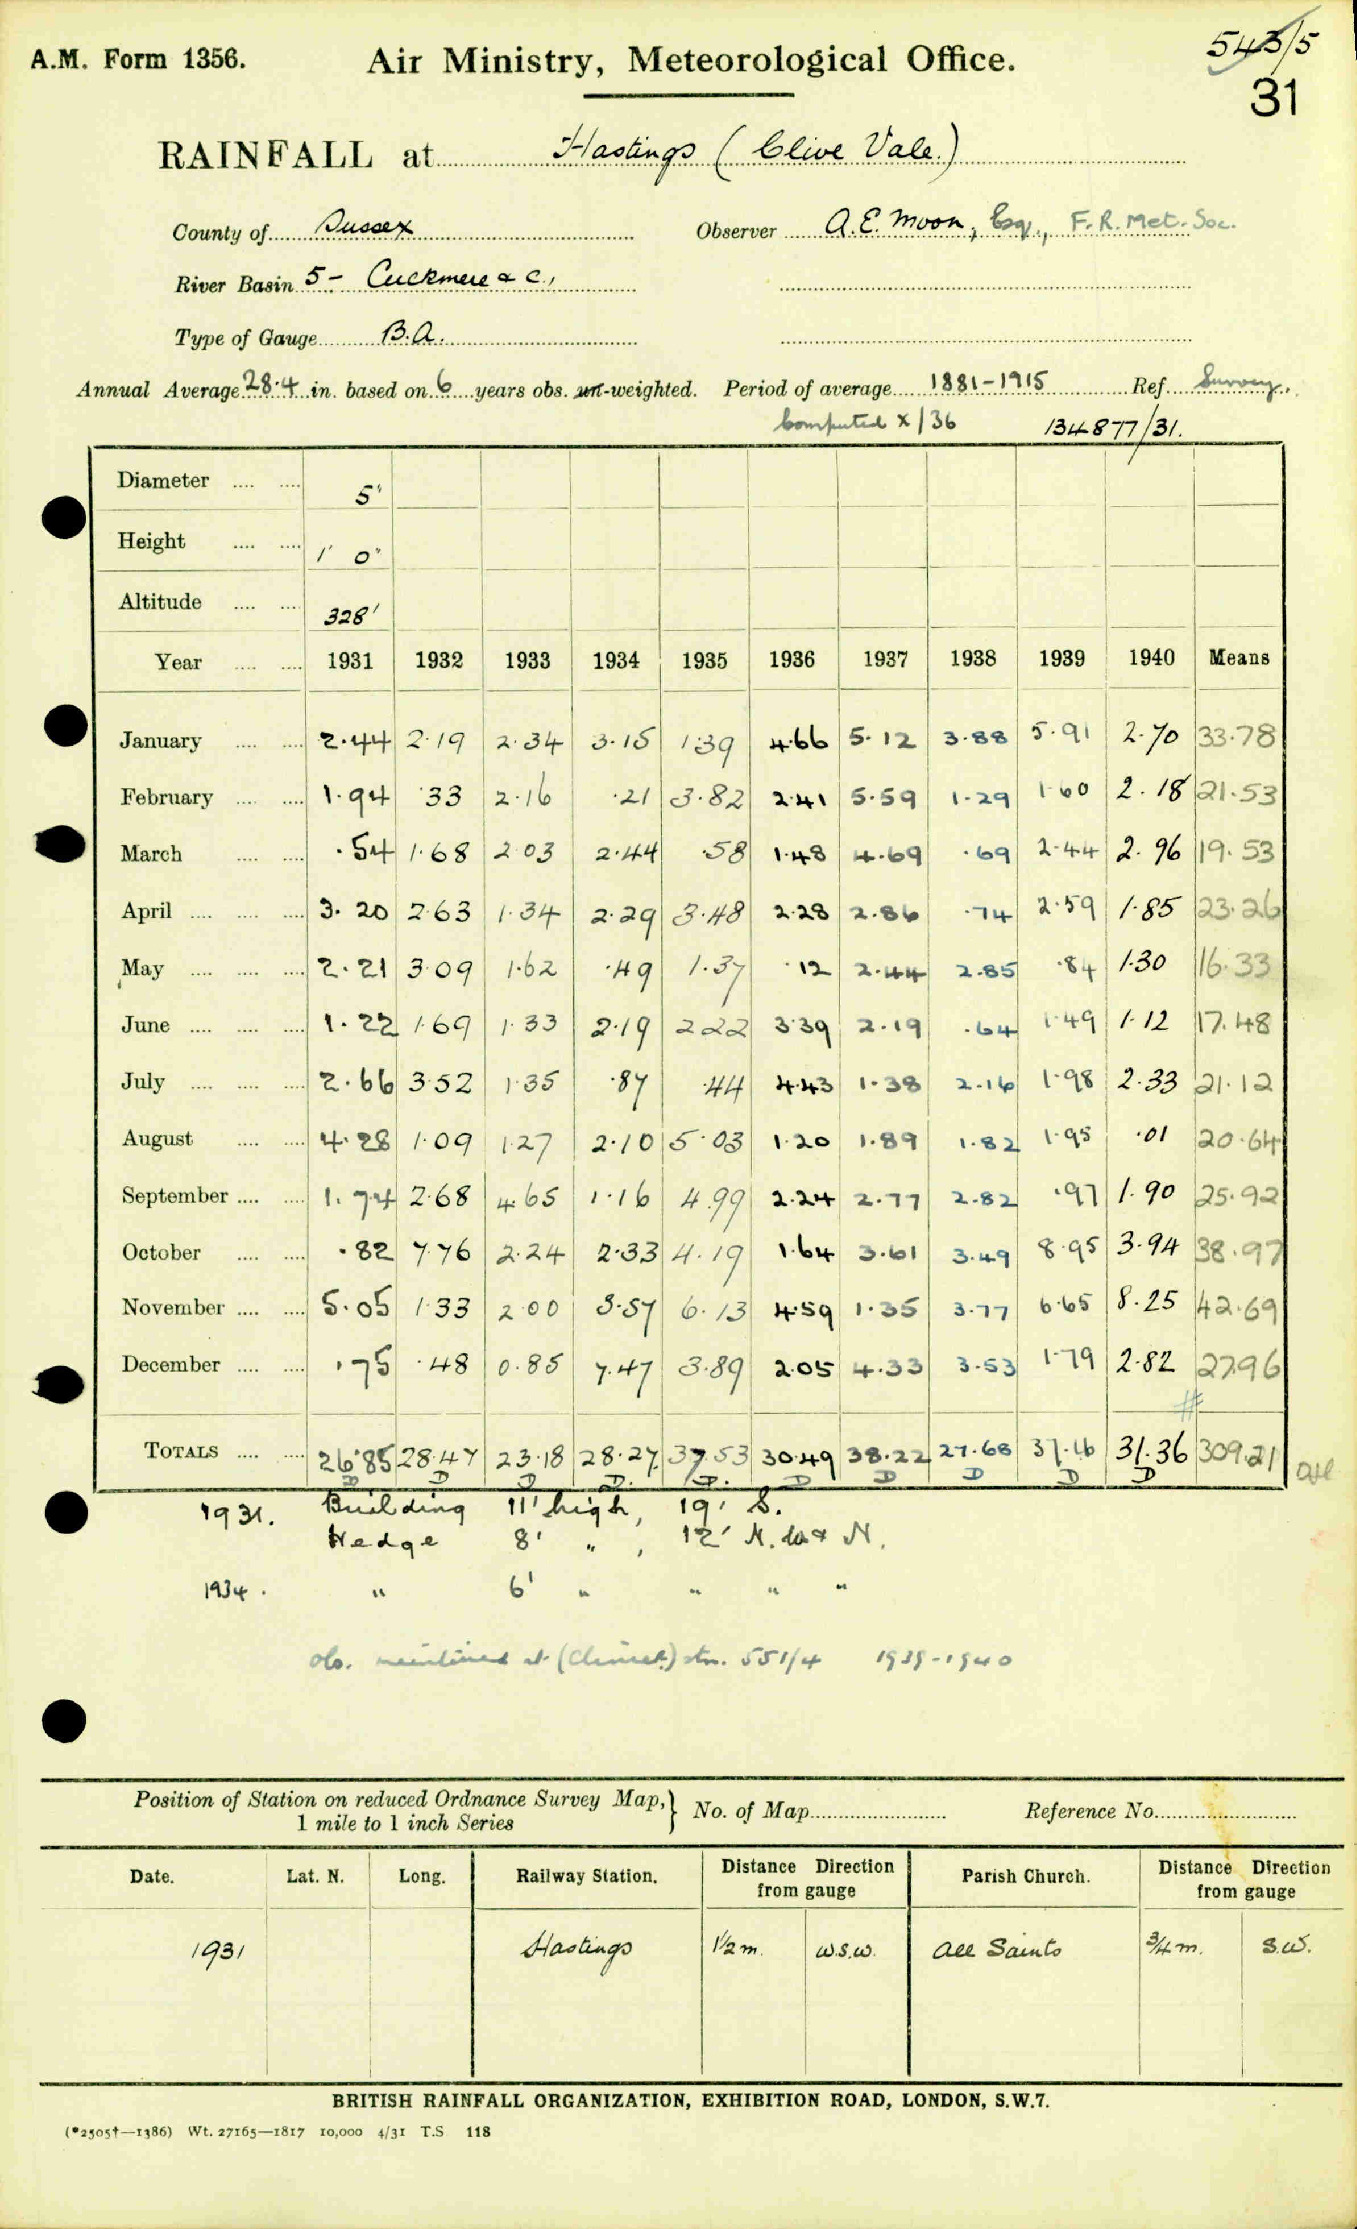 A.M. Form 1356.
Air Ministry, Meteorological Office.
543/5
31
RAINFALL at Hastings (Clive Vale.)
County of Sussex Observer A.E. Moon, Esq., F.R.Met.Soc.
River Basin 5- Cuckmere & c.,
Type of Gauge B.A.
Annual Average 28.4 in. based on 6 years obs. un-weighted. Period of average 1881-1915 Ref. Survey.
Computed X/36 134877/31.
Diameter .... .... 5"
Height .... .... 1' 0"
Altitude .... .... 328'
Year .... .... 1931 1932 1933 1934 1935 1936 1937 1938 1939 1940 Means
January .... .... 2.44 2.19 2.34 3.15 1.39 4.66 5.12 3.88 5.91 2.70 33.78
February .... .... 1.94 .33 2.16 .21 3.82 2.41 5.59 1.29 1.60 2.18 21.53
March .... .... .54 1.68 2.03 2.44 .58 1.48 4.69 .69 2.44 2.96 19.53
April .... .... .... 3.20 2.63 1.34 2.29 3.48 2.28 2.86 .74 2.59 1.85 23.26
May .... .... .... 2.21 3.09 1.62 .49 1.37 .12 2.44 2.85 .84 1.30 16.33
June .... .... .... 1.22 1.69 1.33 2.19 2.22 3.39 2.19 .64 1.49 1.12 17.48
July .... .... .... 2.66 3.52 1.35 .87 .44 4.43 1.38 2.16 1.98 2.33 21.12
August .... .... 4.28 1.09 1.27 2.10 5.03 1.20 1.89 1.82 1.95 .01 20.64
September .... .... 1.74 2.68 4.65 1.16 4.99 2.24 2.77 2.82 .97 1.90 25.92
October .... .... .82 7.76 2.24 2.33 4.19 1.64 3.61 3.49 8.95 3.94 38.97
November .... .... 5.05 1.33 2.00 3.57 6.13 4.59 1.35 3.77 6.65 8.25 42.69
December .... .... .75 .48 0.85 7.47 3.89 2.05 4.33 3.53 1.79 2.82 27.96
TOTALS .... .... 26.85 28.47 23.18 28.27 37.53 30.49 38.22 27.68 37.16 31.36 309.21
D D D D. D. D D D D D
1931. Building 11' high, 19' S.
Hedge 8' " , 12' N.W & N.
1934. " 6' " " " "
obs. mentioned at (Climat.) stn. 551/4 1939-1940
Position of Station on reduced Ordnance Survey Map, } No. of Map Reference No.
1 mile to 1 inch Series
Date. Lat. N. Long. Railway Station. Distance Direction from gauge Parish Church. Distance Direction from gauge
1931 Hastings 1½ m. W.S.W. All Saints ¾ m. S.W.
BRITISH RAINFALL ORGANIZATION, EXHIBITION ROAD, LONDON, S.W.7.
(*2505†—1386) Wt. 27165—1817 10,000 4/31 T.S 118